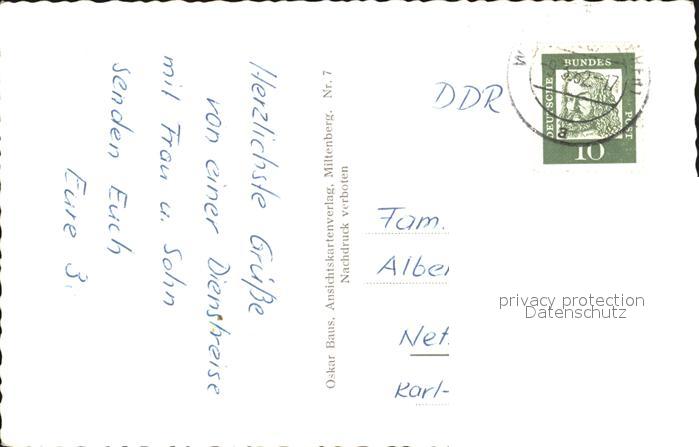 Herzlichste Grüße
von einer Dienstreise
mit Frau u. Sohn
senden Euch
Eure 3.
Oskar Baus, Ansichtskartenverlag, Miltenberg. Nr. 7
Nachdruck verboten
DDR
DEUTSCHE
BUNDES
POST
10
Fam.
Alber
Net
Karl-
privacy protection
Datenschutz